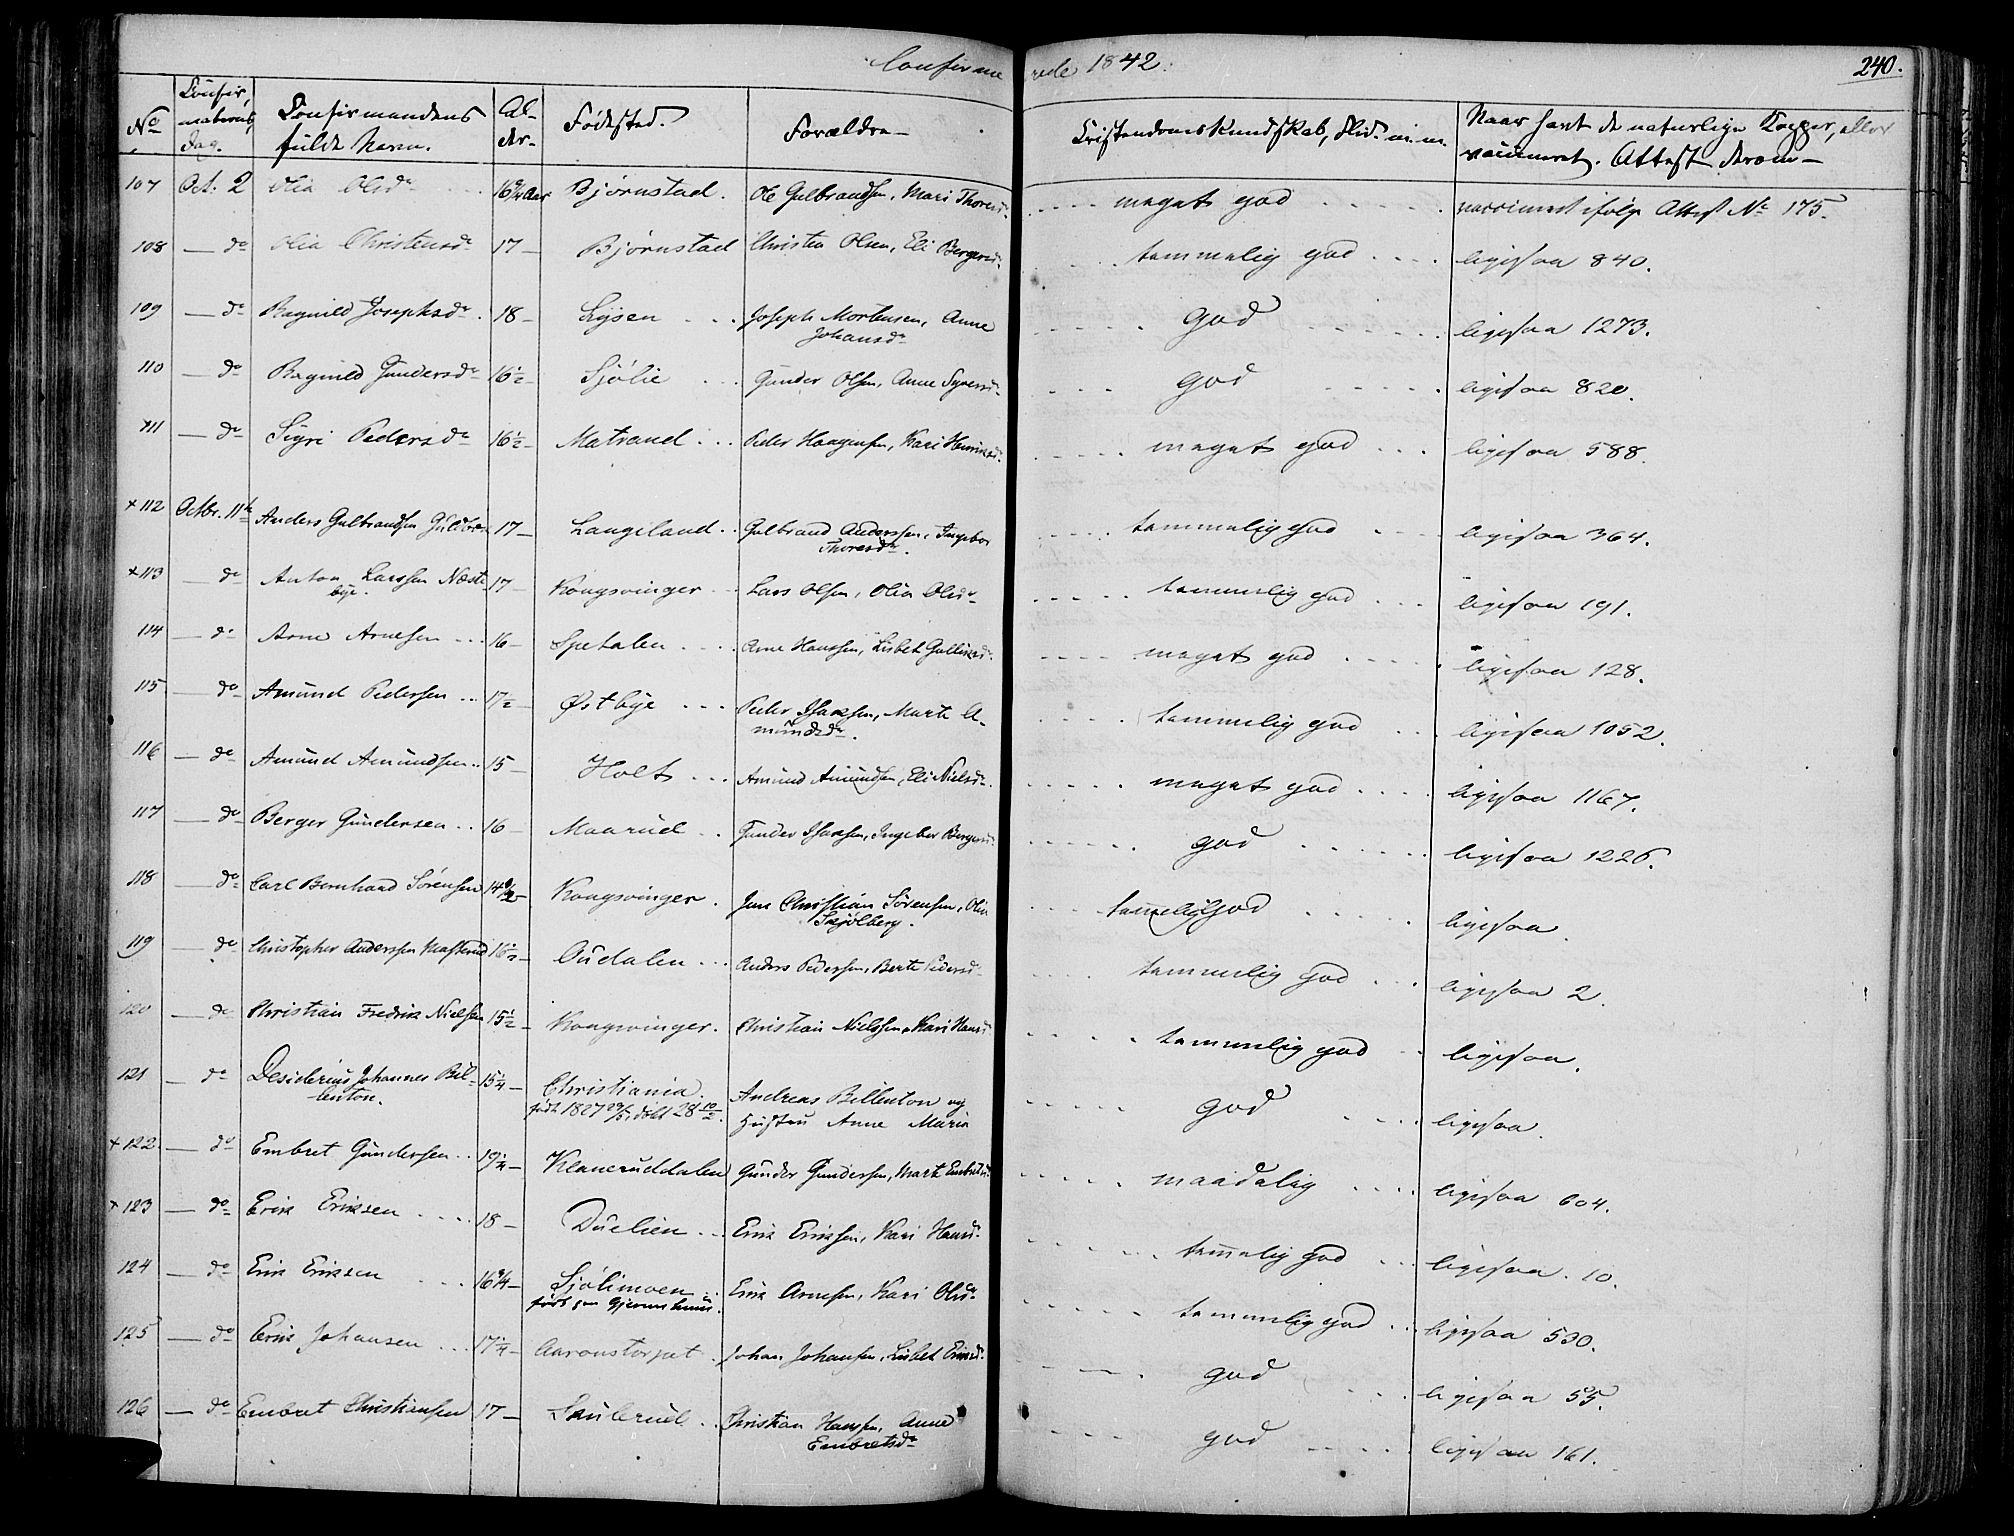 Confirmerede 1842.
240.
No
Confirmations Dag.
Confirmandens fulde Navn.
Alder.
Fødested.
Forældre
Kristendomskundskab, Flid m. m.
Naar havt de naturlige Kopper, eller vaccineret. Attest derom
107 Oct. 2 Olia Olsdr 16 3/4 Aar Bjørnstad. Ole Gulbrandsen, Mari Thoresdr meget god vaccineret ifølge Attest No 175.
108 — do Olia Christensdr 17 — Bjørnstad Christen Olsen, Eli Bergersdr temmelig god ligesaa 840.
109 — do Ragnild Josephsdr. 18 — Lysen Joseph Mortensen, Anne Johansdr god ligesaa 1273.
110 — do Ragnild Gundersdr 16 1/2 — Sjølie Gunder Olsen, Anne Syversdr god ligesaa 820.
111 — do Sigri Pedersdr 16 1/2 — Matrand Peder Haagensen, Kari Henriksdr. meget god ligesaa 588.
+ 112 Octbr. 11te Anders Gulbrandsen 17 — Langeland Gulbrand Anderssen, Ingebor Thoresdr. temmelig god ligesaa 364.
+ 113 — do Anton Larssen Næstebye. 17 — Kongsvinger Lars Olsen, Olia Olsdr temmelig god ligesaa 191.
114 — do Arne Arnesen 16 — Spetalen Arne Hanssen, Lisbet Gulliksdr. meget god ligesaa 128.
115 — do Amund Pedersen 17 1/2 Østbye Peder Isaksen, Marte Amundsdr. temmelig god ligesaa 1052.
116 — do Amund Amundsen 15 — Holt Amund Amundsen, Eli Nielsdr. meget god ligesaa 1167.
117 — do Berger Gundersen 16 — Maarud Gunder Isaksen, Ingebor Bergersdr. god ligesaa 1226.
118 — do Carl Bernhard Sørensen 14 1/2 — Kongsvinger. Jens Christian Sørensen, Olia Skjølberg. temmelig god ligesaa.
119 — do Christopher Anderssen 16 1/2 — Oudalen Anders Pedersen, Berte Pedersdr temmelig god ligesaa 2.
120 — do Christian Fredrik Nielsen 15 1/2 — Kongsvinger. Christian Nielssen, Kari Hansdr temmelig god ligesaa.
121 — do Desiderius Johannes Billenton. 15 1/4 — Christiania. født 1827 døbt 28 Andreas Billenton og Hustru Anne Maria god ligesaa.
+ 122. — do Embret Gundersen 19 1/4 — Klaneruddalen Gunder Gundersen, Marte Embretsdr maadelig ligesaa 604.
+ 123 — do Erik Eriksen 18 — Duelien Erik Erikssen, Kari Hansdr. temmelig god ligesaa 10.
124 — do Erik Eriksen 16 3/4 — Sjølimoen født paa Gjermshuus. Erik Arnesen, Kari Olsdr temmelig god ligesaa 530.
125 — do Erik Johansen 17 1/4 — Aaronstorpet. Johan Johansen, Lisbet Eriksdr. god ligesaa 55.
126 — do Embret Christiansen 17 — Saulerud Christian Hanssen, Anne Embretsdr god ligesaa 161.